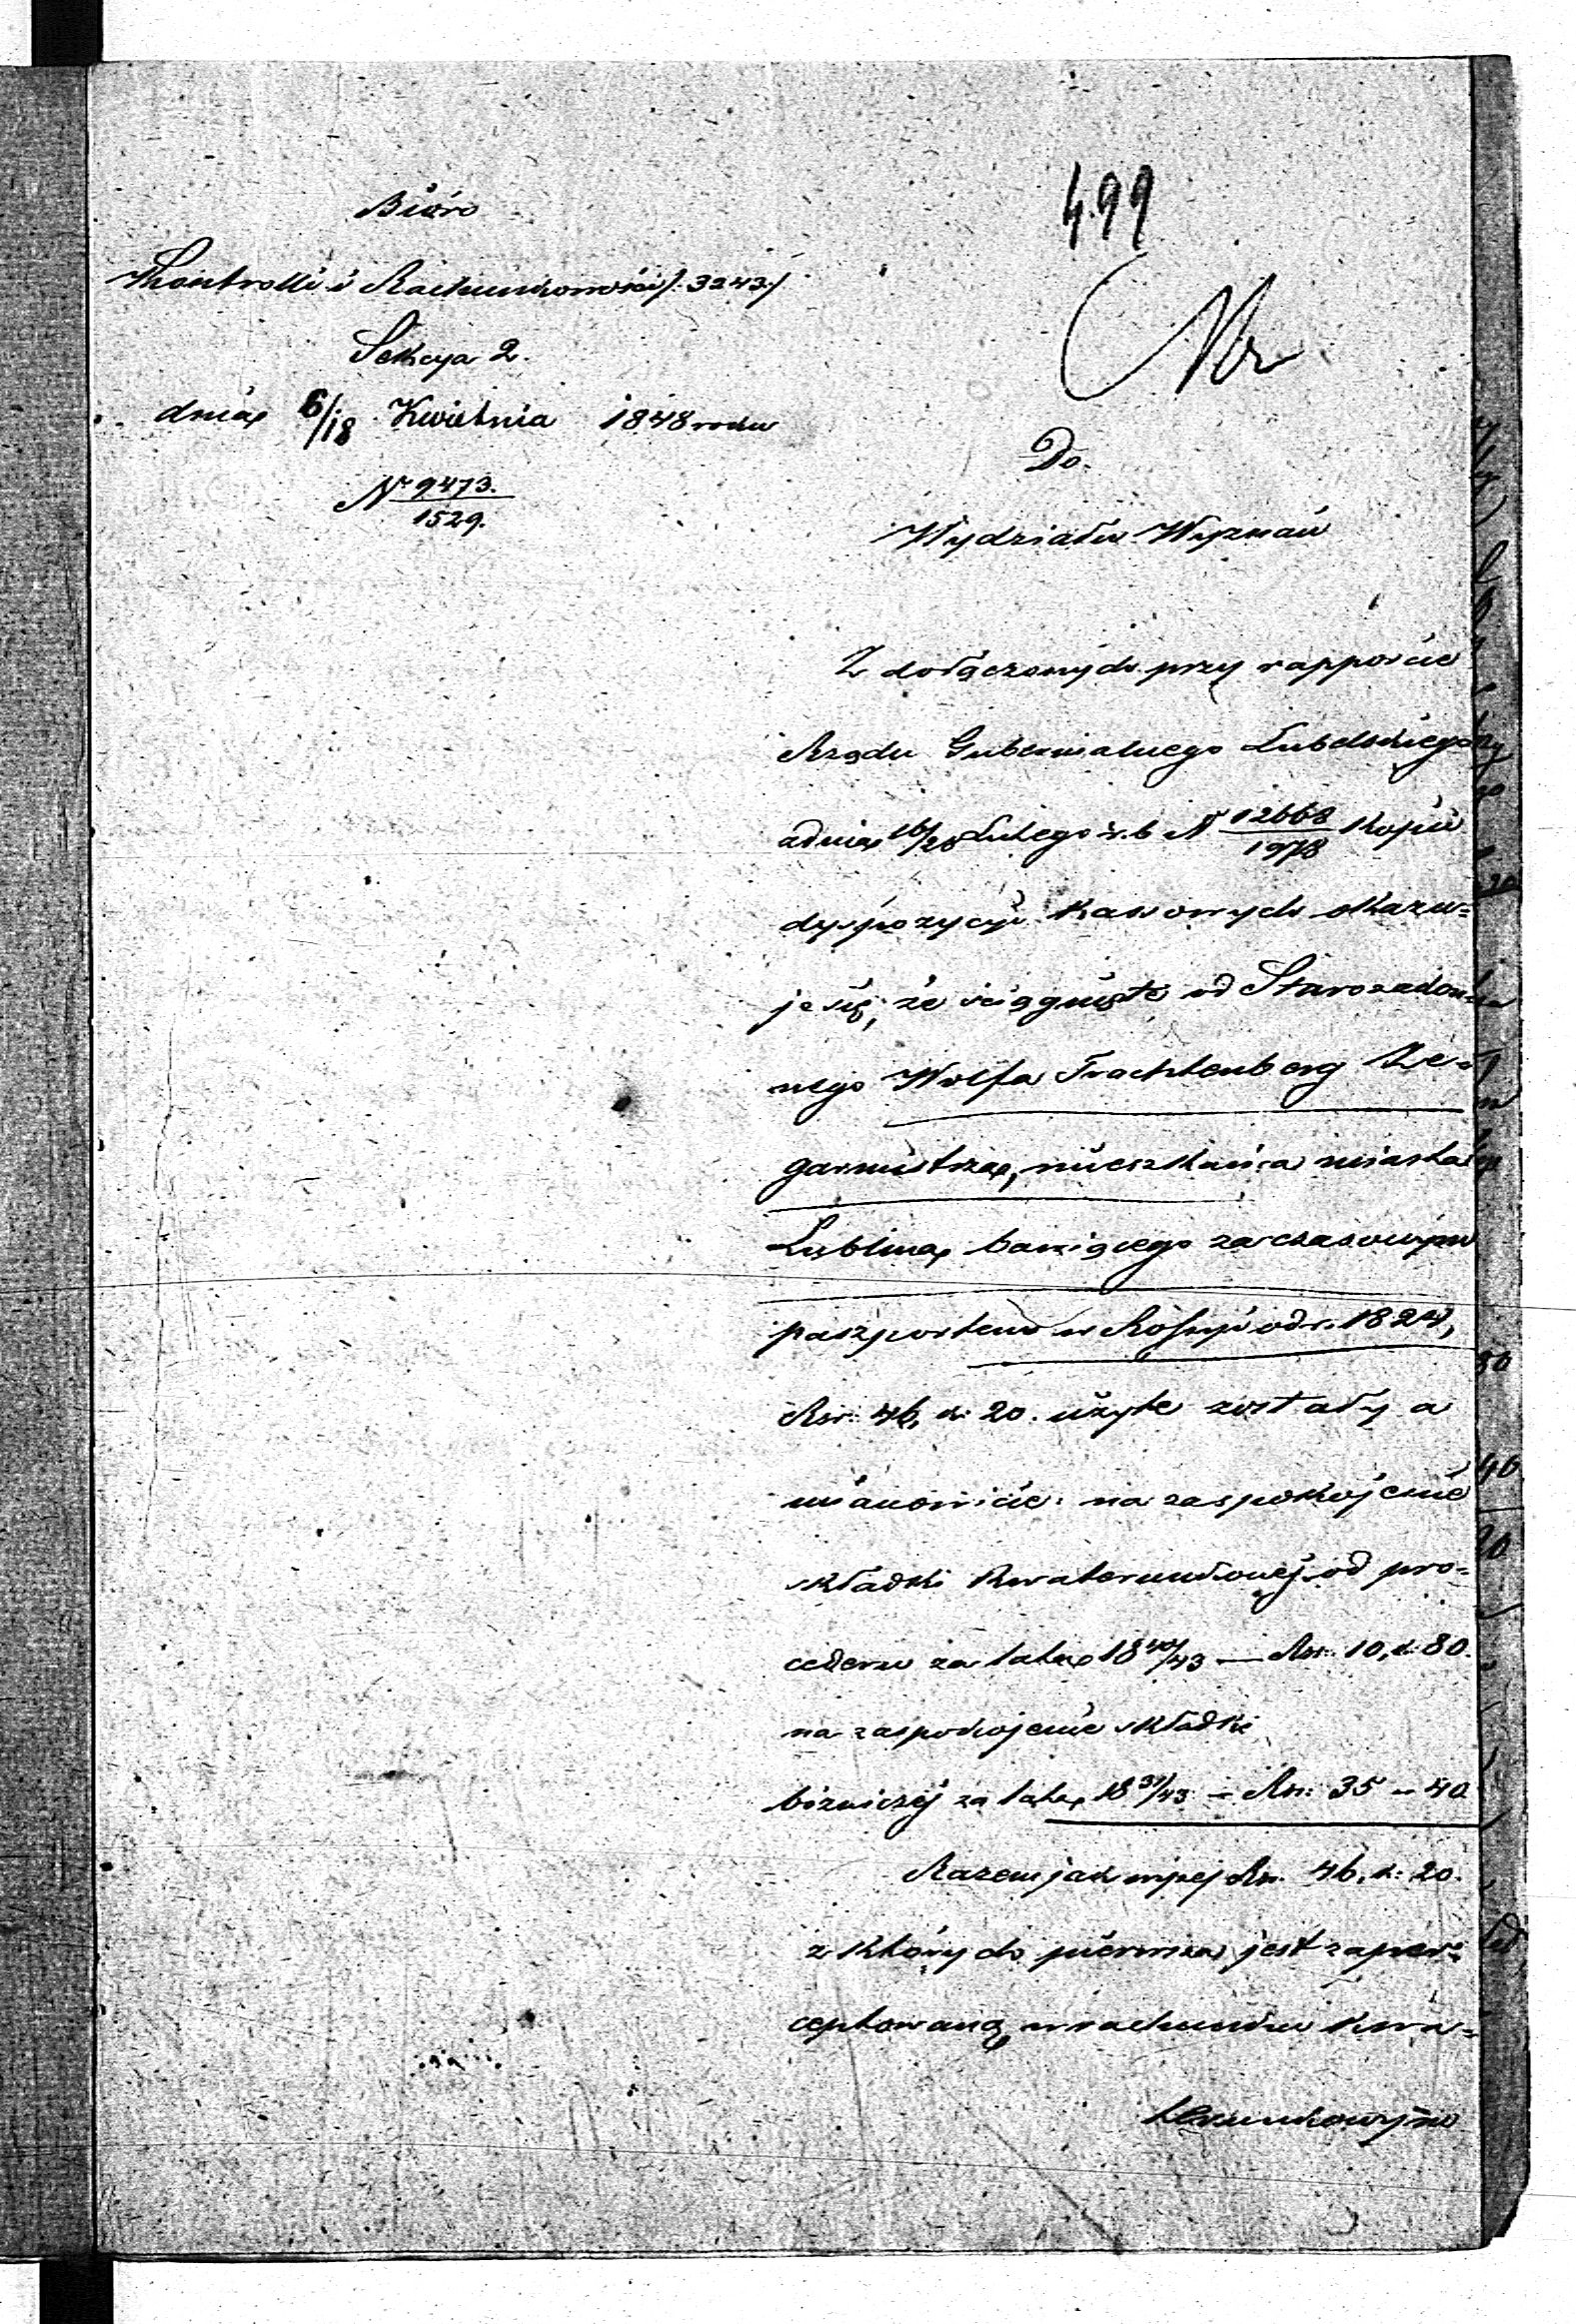 499
Bióro
Kontrolli i Rachunkowości /: 3243 :/
Sekcya 2.
dnia 6/18 Kwietnia 1848 roku
N° 9473./1529.
Do
Wydziału Wyznań
Z dołączonych przy rapporcie
Rządu Gubernialnego Lubelskiego
z dnia 16/28 Lutego r. b. N 12668/1978 kopii
dyspozycyi kassowych okazu=
je się, że ściągnięte od Starozakon=
nego Wolfa Trachtenberg Ze=
garmistrza, mieszkańca miasta
Lublina, bawiącego za czasowym
paszportem w Rossyi od r. 1824,
Rsr: 46, k: 20. użyte zostały a
mianowicie: na zaspokojenie
składki kwaterunkowej od pro=
cederu za lata 18 40/43 — Rsr: 10, k: 80.
na zaspokojenie składki
bożniczej za lata 18 31/43 — Rsr: 35 „ 40
Razem jak wyżej Rsr. 46, k: 20.
z których pierwsza jest zaper=
ceptowaną w rachunku kwa=
terunkowym